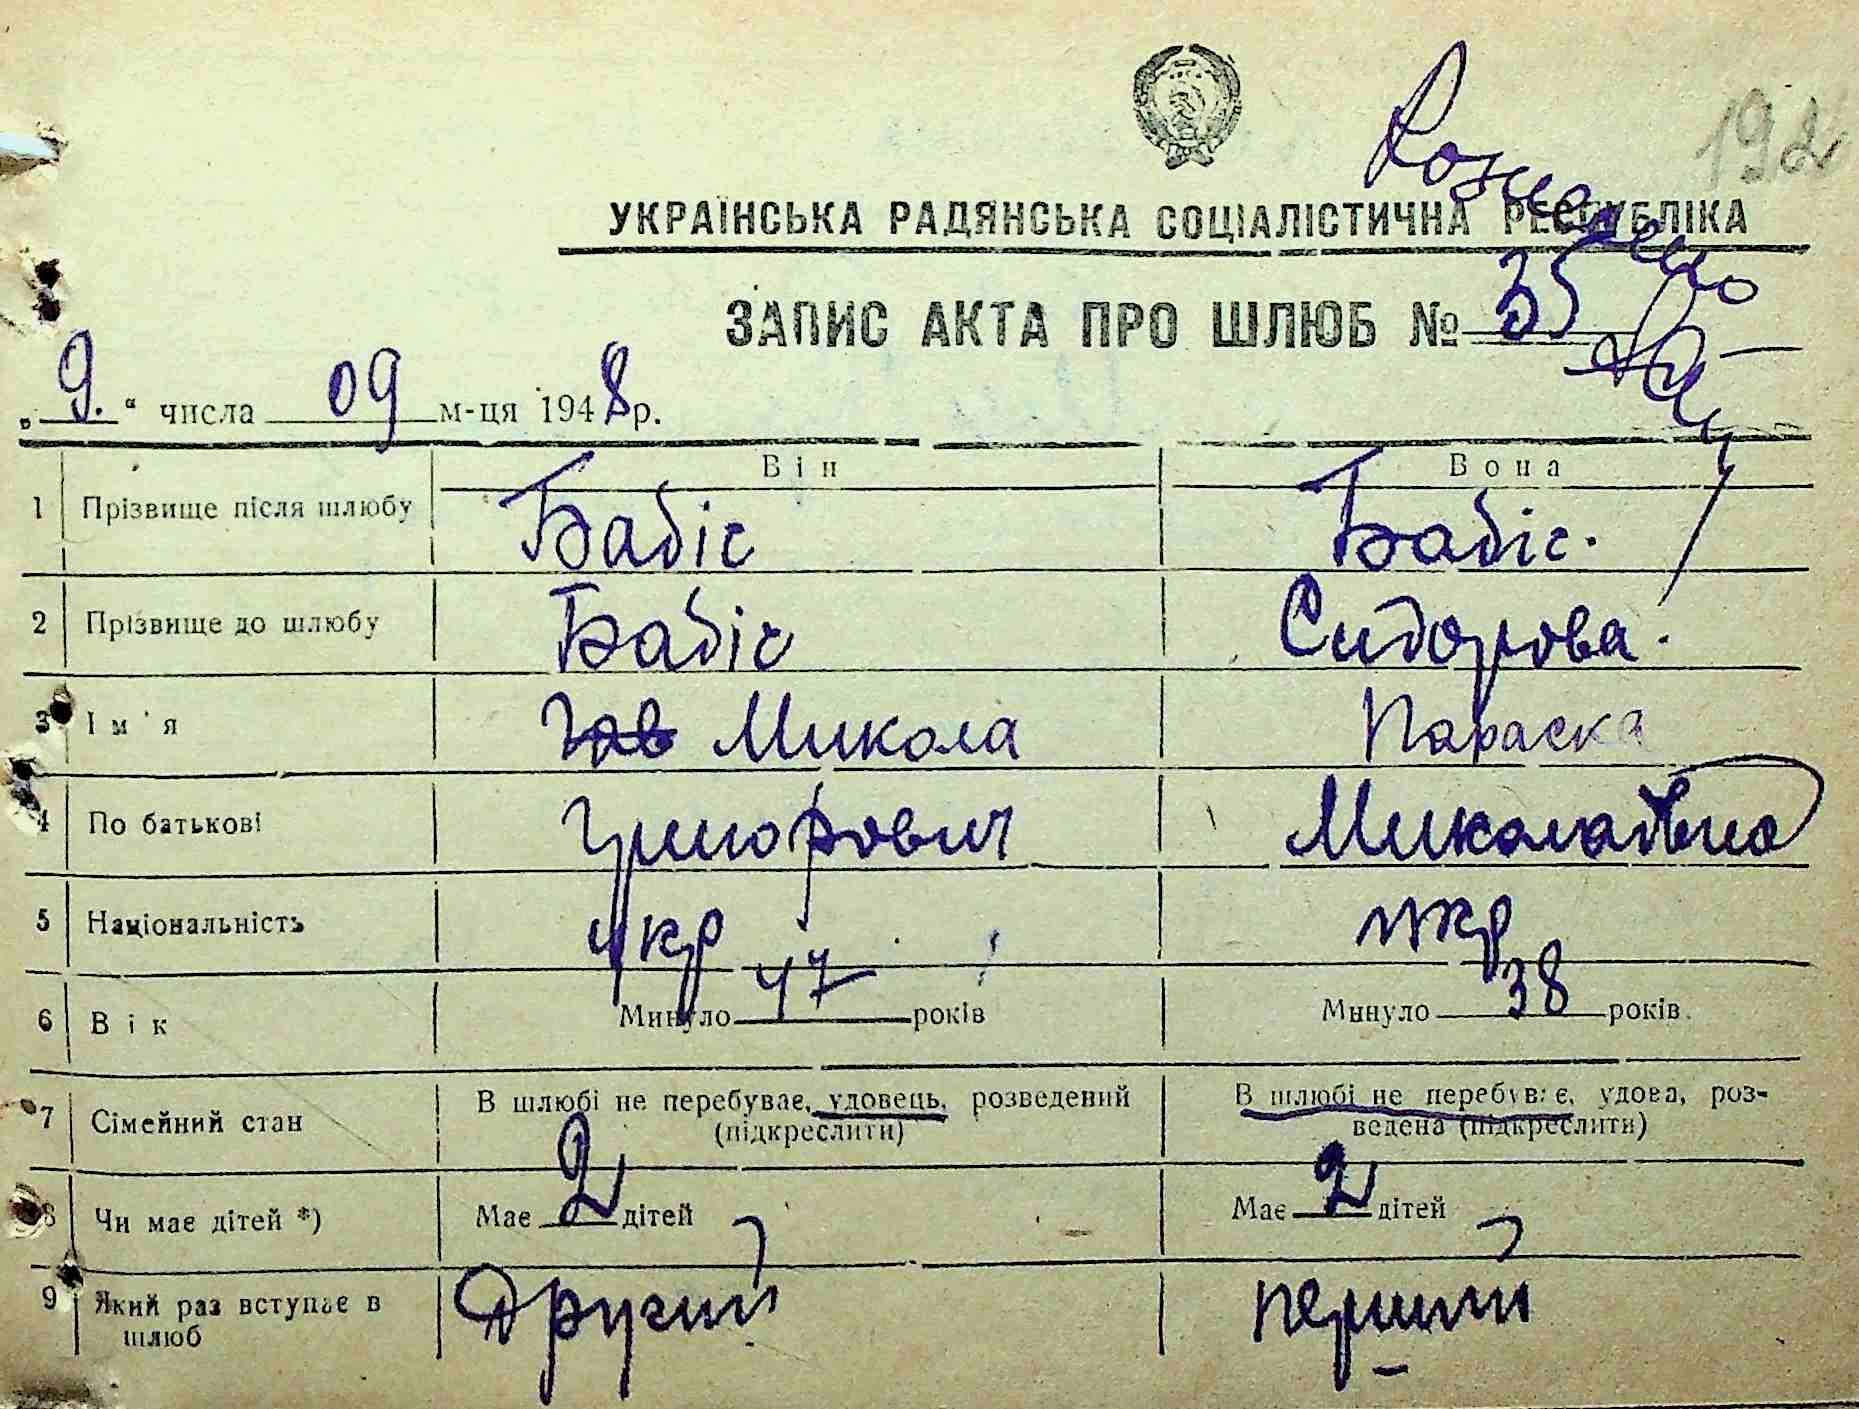 192
Розшлено
УКРАЇНСЬКА РАДЯНСЬКА СОЦІАЛІСТИЧНА РЕСПУБЛІКА
ЗАПИС АКТА ПРО ШЛЮБ № 35
„9.“ числа 09 м-ця 1948 р.
Він Вона
1 Прізвище після шлюбу Бабіс Бабіс.
2 Прізвище до шлюбу Бабіс Сидорова.
3 Ім'я Гав Микола Параска
4 По батькові Григорович Миколаївна
5 Національність укр укр
6 Вік Минуло 47 років Минуло 38 років
7 Сімейний стан В шлюбі не перебуває, удовець, розведений (підкреслити) В шлюбі не перебуває, удова, роз-
ведена (підкреслити)
8 Чи має дітей *) Має 2 дітей Має 2 дітей
9 Який раз вступає в Другий перший
шлюб